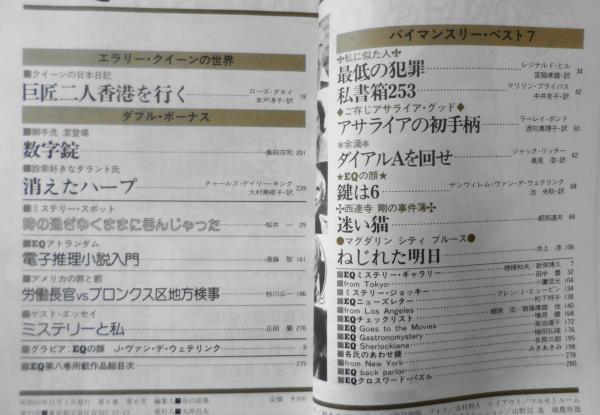 エラリー・クイーンの世界
■クイーンの日本日記
巨匠二人香港を行く
ローズ・ダネイ
木戸淳子・訳 18
ダブル・ボーナス
■御手洗 潔登場
数字錠
島田荘司 201
■詮索好きなタラント氏
消えたハープ
チャールズ・デイリー・キング
大村美根子・訳 239
■ミステリー・スポット
時の過ぎゆくままに呑んじゃった
桜井 一 29
■EQアトランダム
電子推理小説入門
遠藤 智 161
■アメリカの罪と罰
労働長官vsブロンクス区地方検事
枝川公一 186
■ゲスト・エッセイ
ミステリーと私
正田 巌 276
■グラビア：EQの顔 J・ヴァン・デ・ウェテリンク 9
■EQ第八巻所載作品総目次 275
定価 ￥600
バイマンスリー・ベスト7
✤私に似た人✤
最低の犯罪
レジナルド・ヒル
宮脇孝雄・訳 34
私書箱253
マリリン・プライバス
中井京子・訳 42
◆ご存じアサライア・グッド◆
アサライアの初手柄
ラーレイ・ボンド
酒匂真理子・訳 50
＊余滴＊
ダイアルAを回せ
ジャック・リッチー
高見 浩・訳 62
★EQの顔★
鍵は6
ヤンウィレム・ヴァン・デ・ウェテリンク
池 央耿・訳 68
✤西連寺 剛の事件簿✤
迷い猫
都筑道夫 84
●マグダリン シティ ブルース●
ねじれた明日
井上 淳 106
■EQミステリー・ギャラリー
穂積和夫・新保博久 7
■from Tokyo
田中 豊 32
■ミステリー・ジョッキー
小鷹信光 104
■EQニューズレター
アレン・J・ヒュービン 134
■from Los Angeles
松下祥子 138
■EQチェックリスト
■EQ Goes to the Movies
■EQ Gastronomystery
■EQ Sherlockiana
■各氏のあわせ鏡
■from New York
■EQ back parlor
■EQクロスワード・パズル